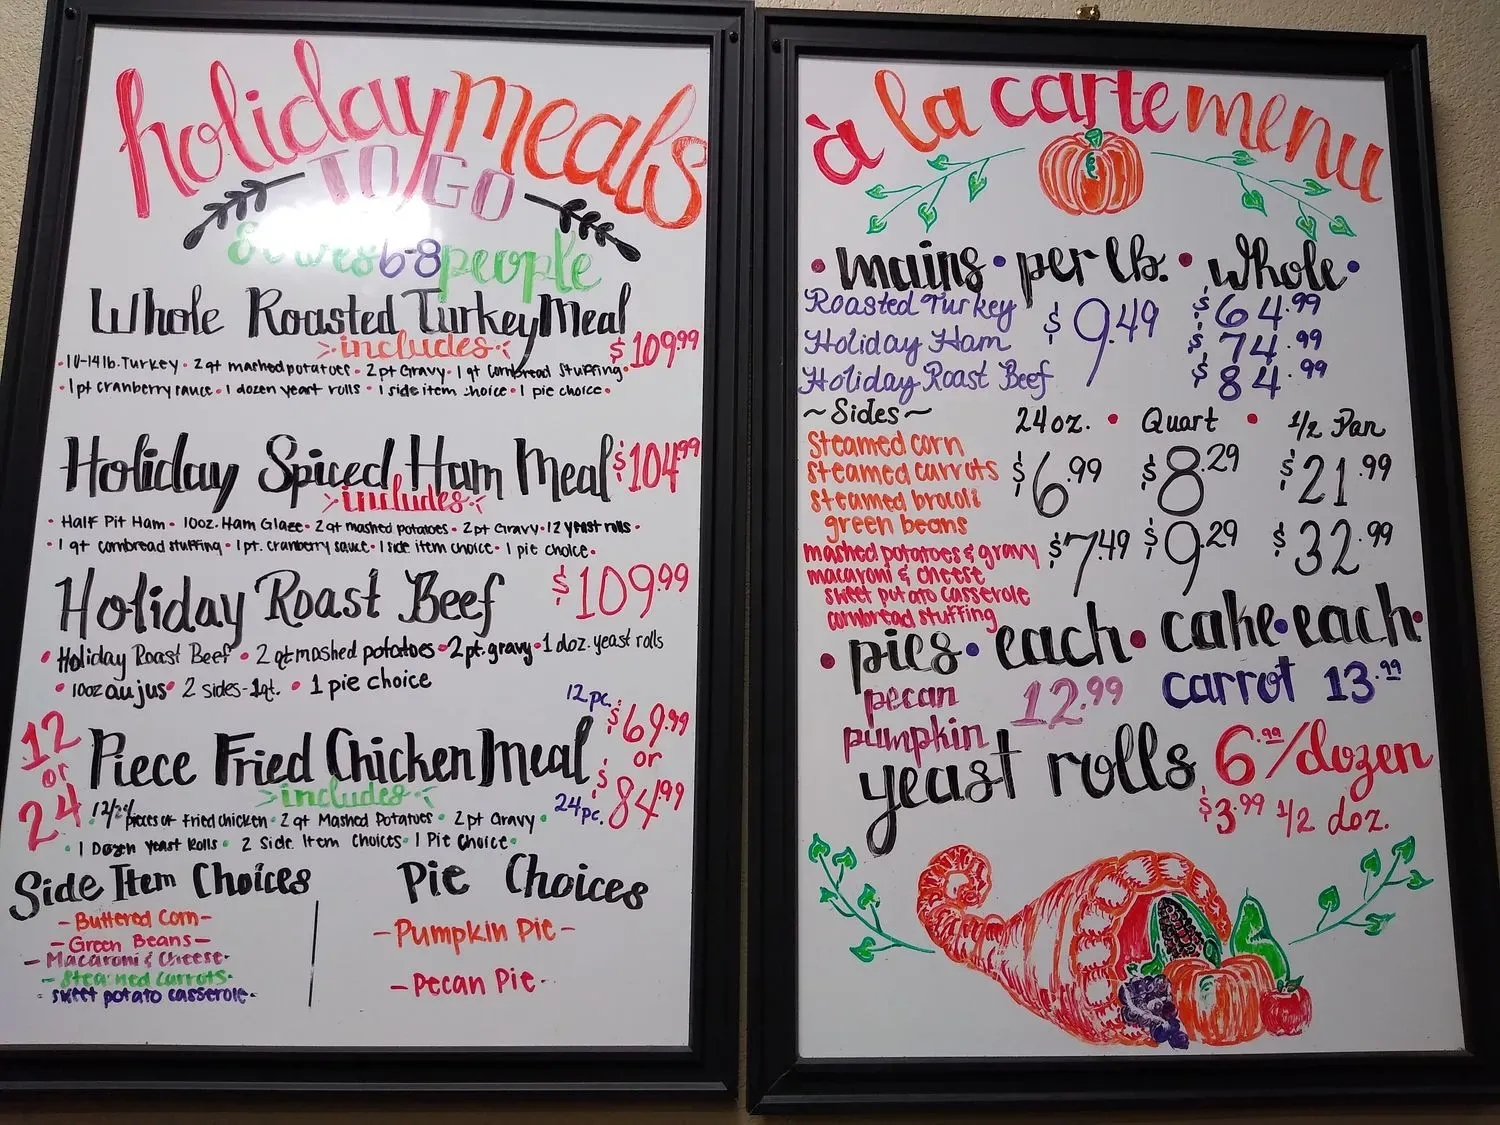 holiday meals
TO GO
Serves 6-8 people
Whole Roasted Turkey Meal
includes
$109.99
·10-14lb. Turkey · 2qt mashed potatoes · 2pt Gravy · 1 qt Cornbread Stuffing·
·1pt cranberry sauce· 1 dozen yeast rolls · 1 side item choice · 1 pie choice·
Holiday Spiced Ham Meal $104.99
includes
· Half Pit Ham · 10oz. Ham Glaze · 2qt mashed potatoes · 2pt Gravy · 12 yeast rolls ·
· 1 qt cornbread stuffing · 1pt. cranberry sauce · 1 side item choice · 1 pie choice·
Holiday Roast Beef $109.99
· Holiday Roast Beef · 2 qt mashed potatoes · 2pt. gravy · 1 doz. yeast rolls
· 10oz au jus · 2 sides-1qt. · 1 pie choice
12 or 24 Piece Fried Chicken Meal
12pc. $69.99
or
24pc. $84.99
includes
· 12/24 pieces of fried chicken · 2 qt Mashed Potatoes · 2pt Gravy ·
· 1 Dozen Yeast Rolls · 2 Side Item Choices · 1 Pie Choice·
Side Item Choices
- Buttered Corn -
- Green Beans -
- Macaroni & Cheese -
- Steamed Carrots -
- sweet potato casserole -
Pie Choices
- Pumpkin Pie -
- Pecan Pie -
à la carte menu
· mains · per lb. · whole ·
Roasted Turkey $64.99
Holiday Ham $9.49 $74.99
Holiday Roast Beef $84.99
~Sides~ 24oz. · Quart · 1/2 Pan
steamed corn
steamed carrots $6.99 $8.29 $21.99
steamed brocoli
green beans
mashed potatoes & gravy $7.49 $9.29 $32.99
macaroni & cheese
sweet potato casserole
cornbread stuffing
· pies · each · cake · each ·
pecan 12.99 carrot 13.99
pumpkin
yeast rolls 6.99/dozen
$3.99 1/2 doz.